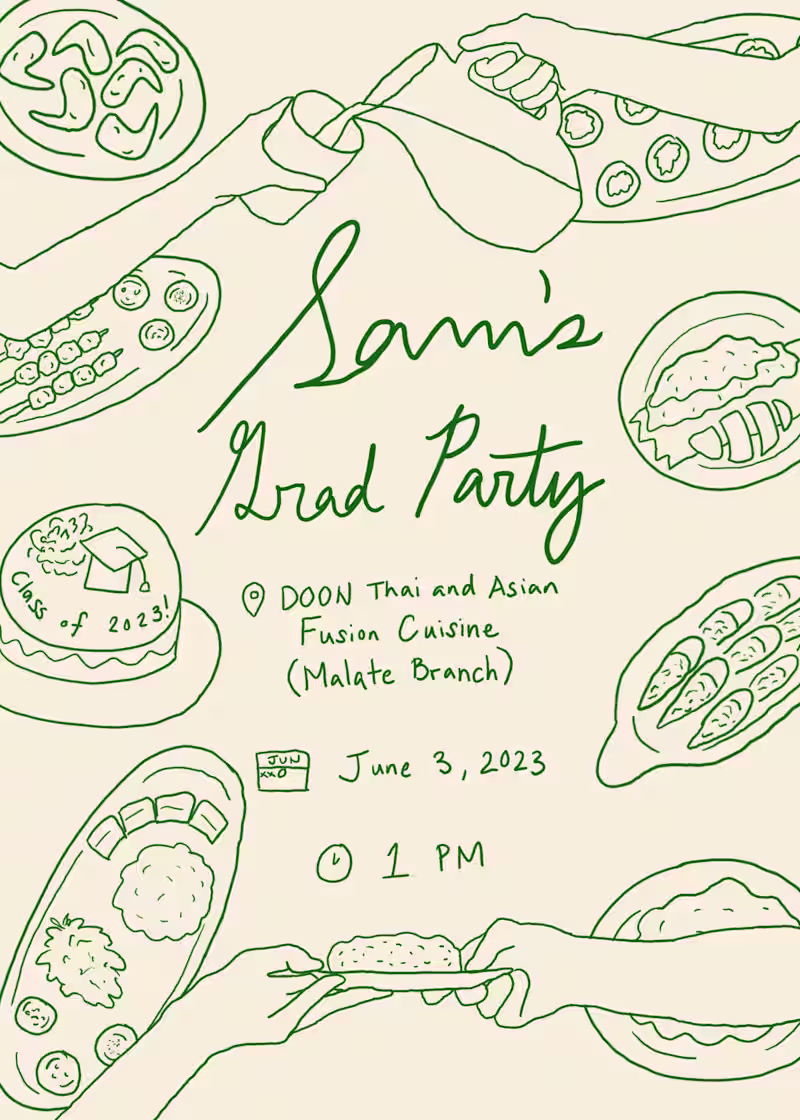 Sam's
Grad Party
DOON Thai and Asian
Fusion Cuisine
(Malate Branch)
Class of 2023!
JUN
xxO
June 3, 2023
1 PM